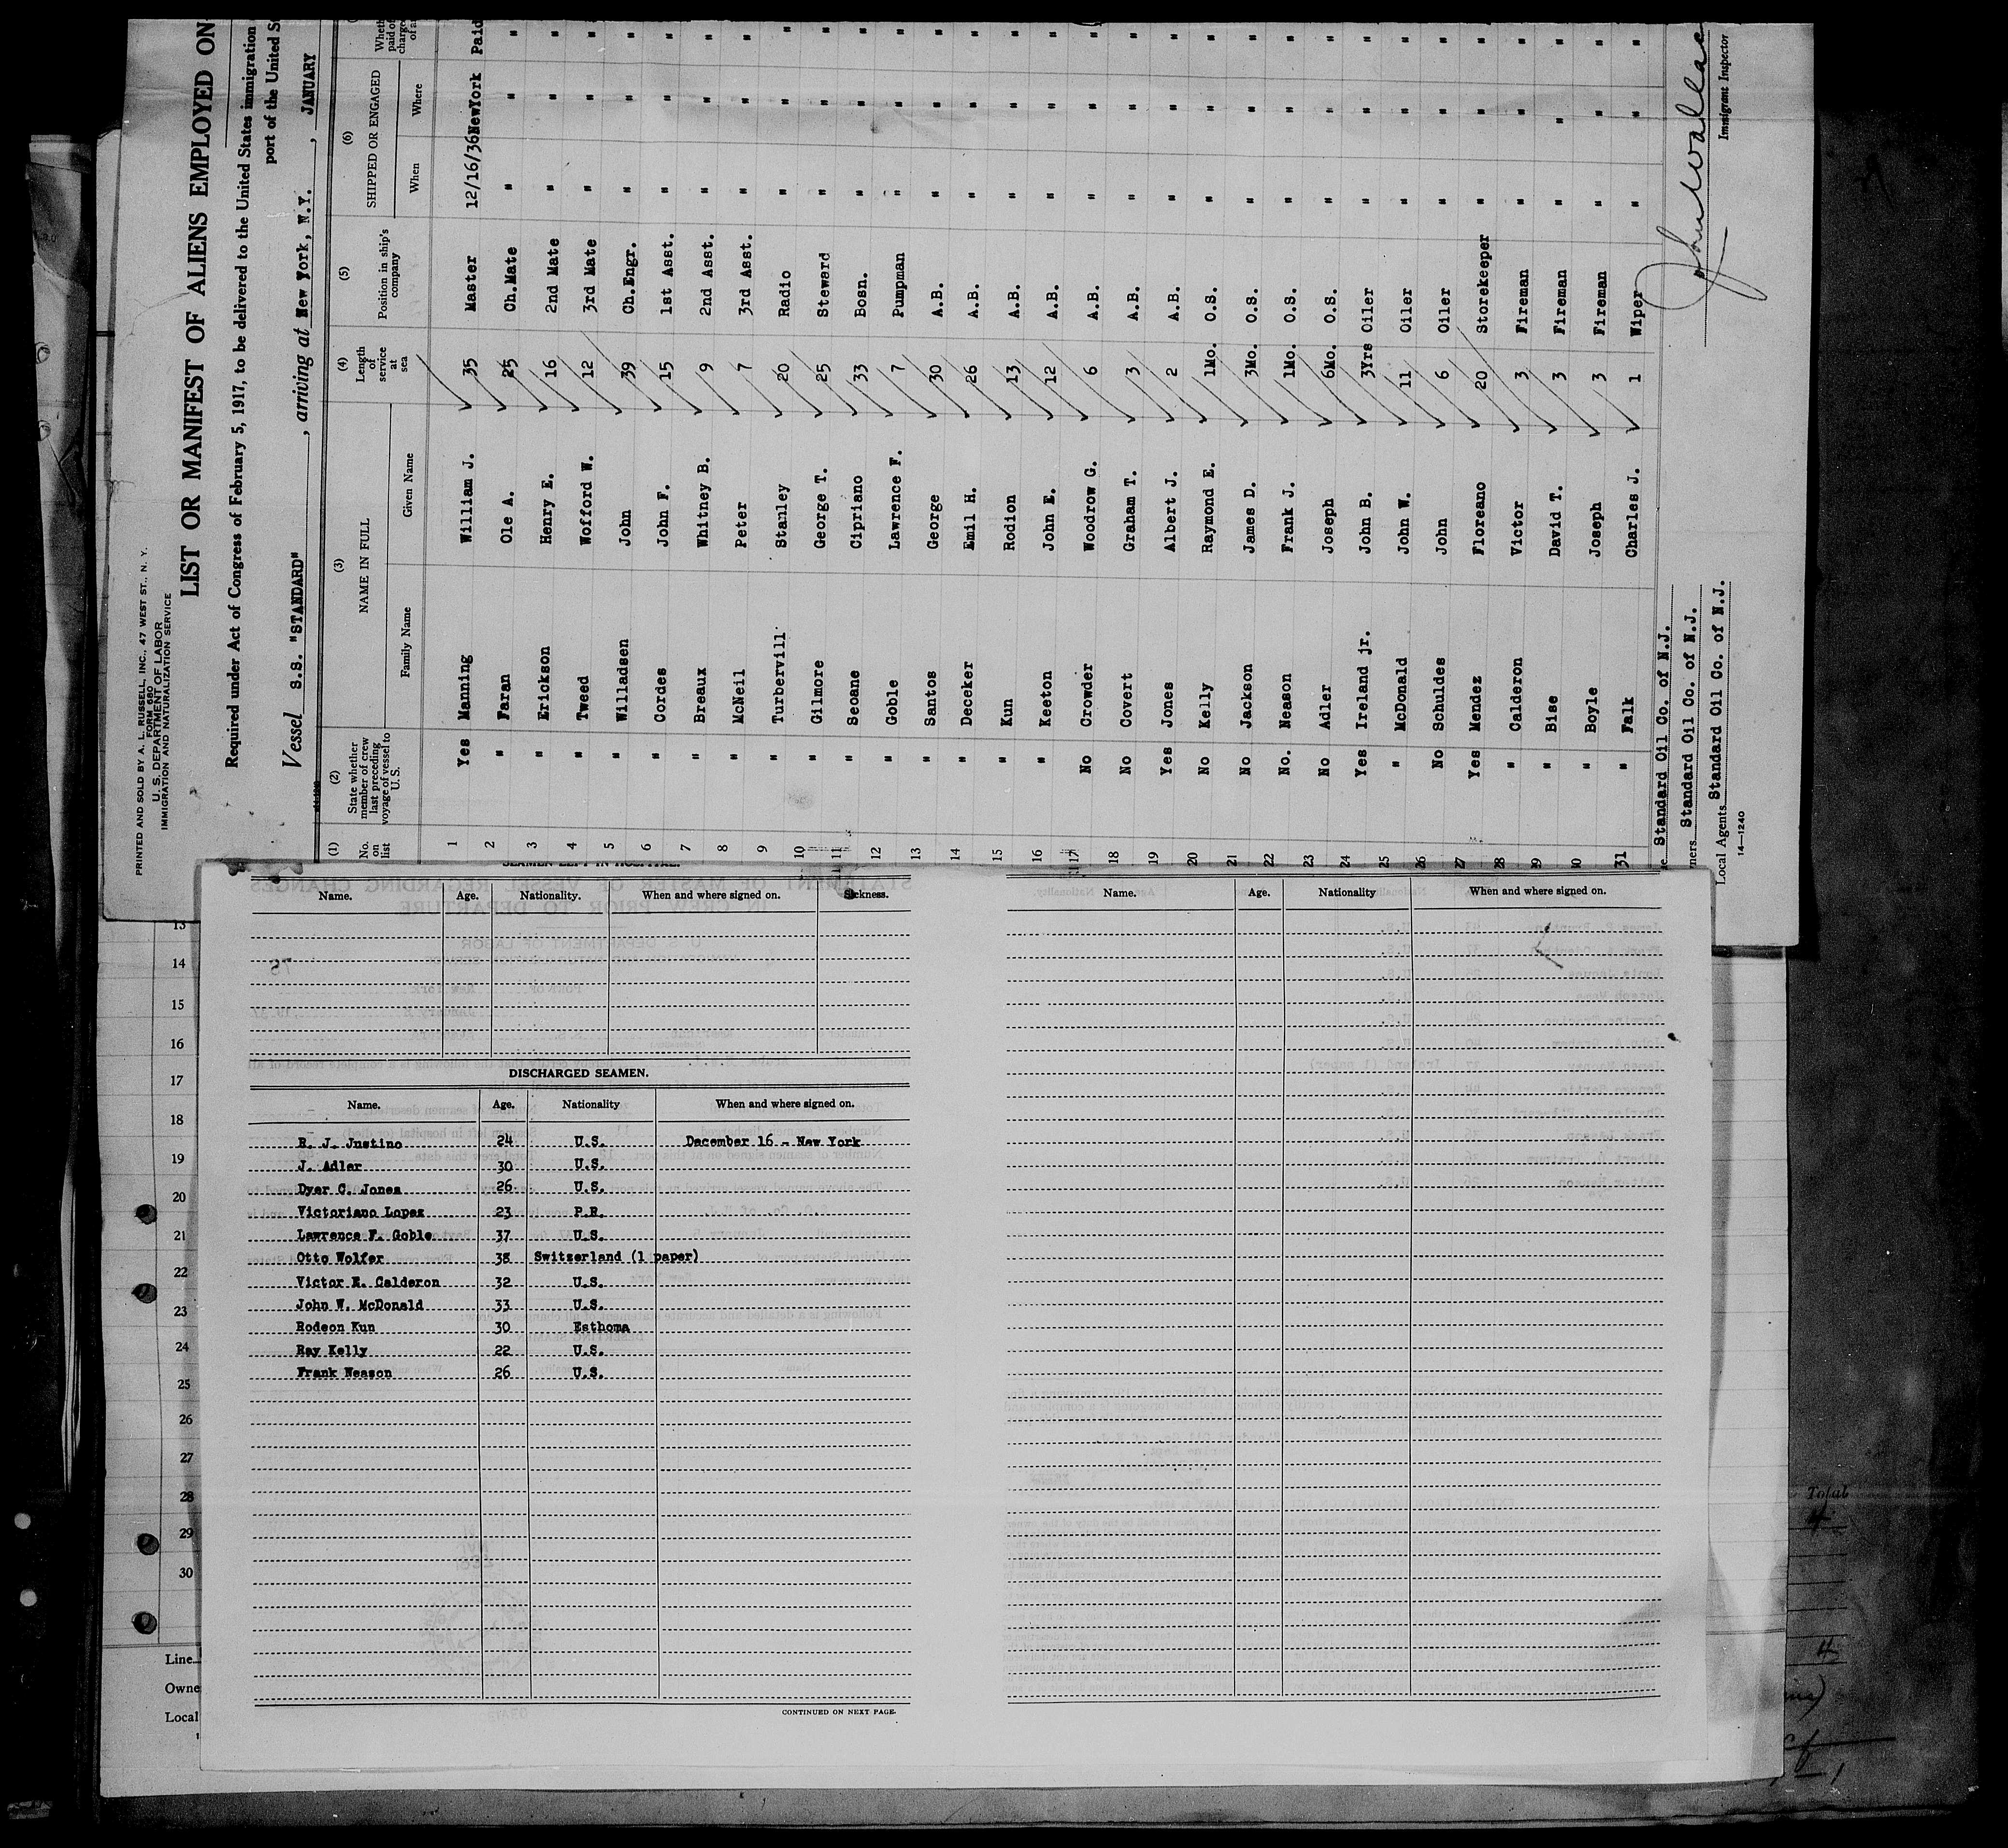 PRINTED AND SOLD BY A. L. RUSSELL, INC., 47 WEST ST., N. Y.
FORM 680
U. S. DEPARTMENT OF LABOR
IMMIGRATION AND NATURALIZATION SERVICE
LIST OR MANIFEST OF ALIENS EMPLOYED ON
Required under Act of Congress of February 5, 1917, to be delivered to the United States immigration
port of the United
Vessel S.S. "STANDARD", arriving at New York, N.Y., JANUARY
(1) (2) (3) (4) (5) (6)
No. on list State whether member of crew last preceding voyage of vessel to U. S. NAME IN FULL Length of service at sea Position in ship's company SHIPPED OR ENGAGED
Family Name Given Name When Where
1 Yes Manning William J. 35 Master 12/16/36 NewYork Paid
2 " Faran Ole A. 25 Ch.Mate " " "
3 " Erickson Henry E. 16 2nd Mate " " "
4 " Tweed Wofford W. 12 3rd Mate " " "
5 " Willadsen John 39 Ch.Engr. " " "
6 " Cordes John F. 15 1st Asst. " " "
7 " Breaux Whitney B. 9 2nd Asst. " " "
8 " McNeil Peter 7 3rd Asst. " " "
9 " Turbervill Stanley 20 Radio " " "
10 " Gilmore George T. 25 Steward " " "
11 " Seoane Cipriano 33 Bosn. " " "
12 " Goble Lawrence F. 7 Pumpman " " "
13 " Santos George 30 A.B. " " "
14 " Deceker Emil H. 26 A.B. " " "
15 " Kun Rodion 13 A.B. " " "
16 " Keeton John E. 12 A.B. " " "
17 No Crowder Woodrow G. 6 A.B. " " "
18 No Covert Graham T. 3 A.B. " " "
19 Yes Jones Albert J. 2 A.B. " " "
20 No Kelly Raymond E. 1Mo. O.S. " " "
21 No Jackson James D. 3Mo. O.S. " " "
22 No. Neason Frank J. 1Mo. O.S. " " "
23 No Adler Joseph 6Mo. O.S. " " "
24 Yes Ireland jr. John B. 3Yrs Oiler " " "
25 " McDonald John W. 11 Oiler " " "
26 No Schuldes John 6 Oiler " " "
27 Yes Mendez Floreano 20 Storekeeper " " "
28 " Calderon Victor 3 Fireman " " "
29 " Bise David T. 3 Fireman " " "
30 " Boyle Joseph 3 Fireman " " "
31 " Falk Charles J. 1 Wiper " " "
Standard Oil Co. of N.J.
Standard Oil Co. of N.J.
Local Agents Standard Oil Co. of N.J.
14—1240
Immigrant Inspector
SEAMEN LEFT IN HOSPITAL.
Name. Age. Nationality. When and where signed on. Sickness.
DISCHARGED SEAMEN.
Name. Age. Nationality When and where signed on.
R. J. Justino 24 U.S. December 16 - New York
J. Adler 30 U.S.
Dyer C. Jones 26 U.S.
Victoriano Lopez 23 P.R.
Lawrence F. Goble 37 U.S.
Otto Wolfer 38 Switzerland (1 paper)
Victor E. Calderon 32 U.S.
John W. McDonald 33 U.S.
Rodeon Kun 30 Esthoma
Ray Kelly 22 U.S.
Frank Neason 26 U.S.
CONTINUED ON NEXT PAGE.
Name. Age. Nationality When and where signed on.
13
14
15
16
17
18
19
20
21
22
23
24
25
26
27
28
29
30
Line
Owne
Local
Total
4
4